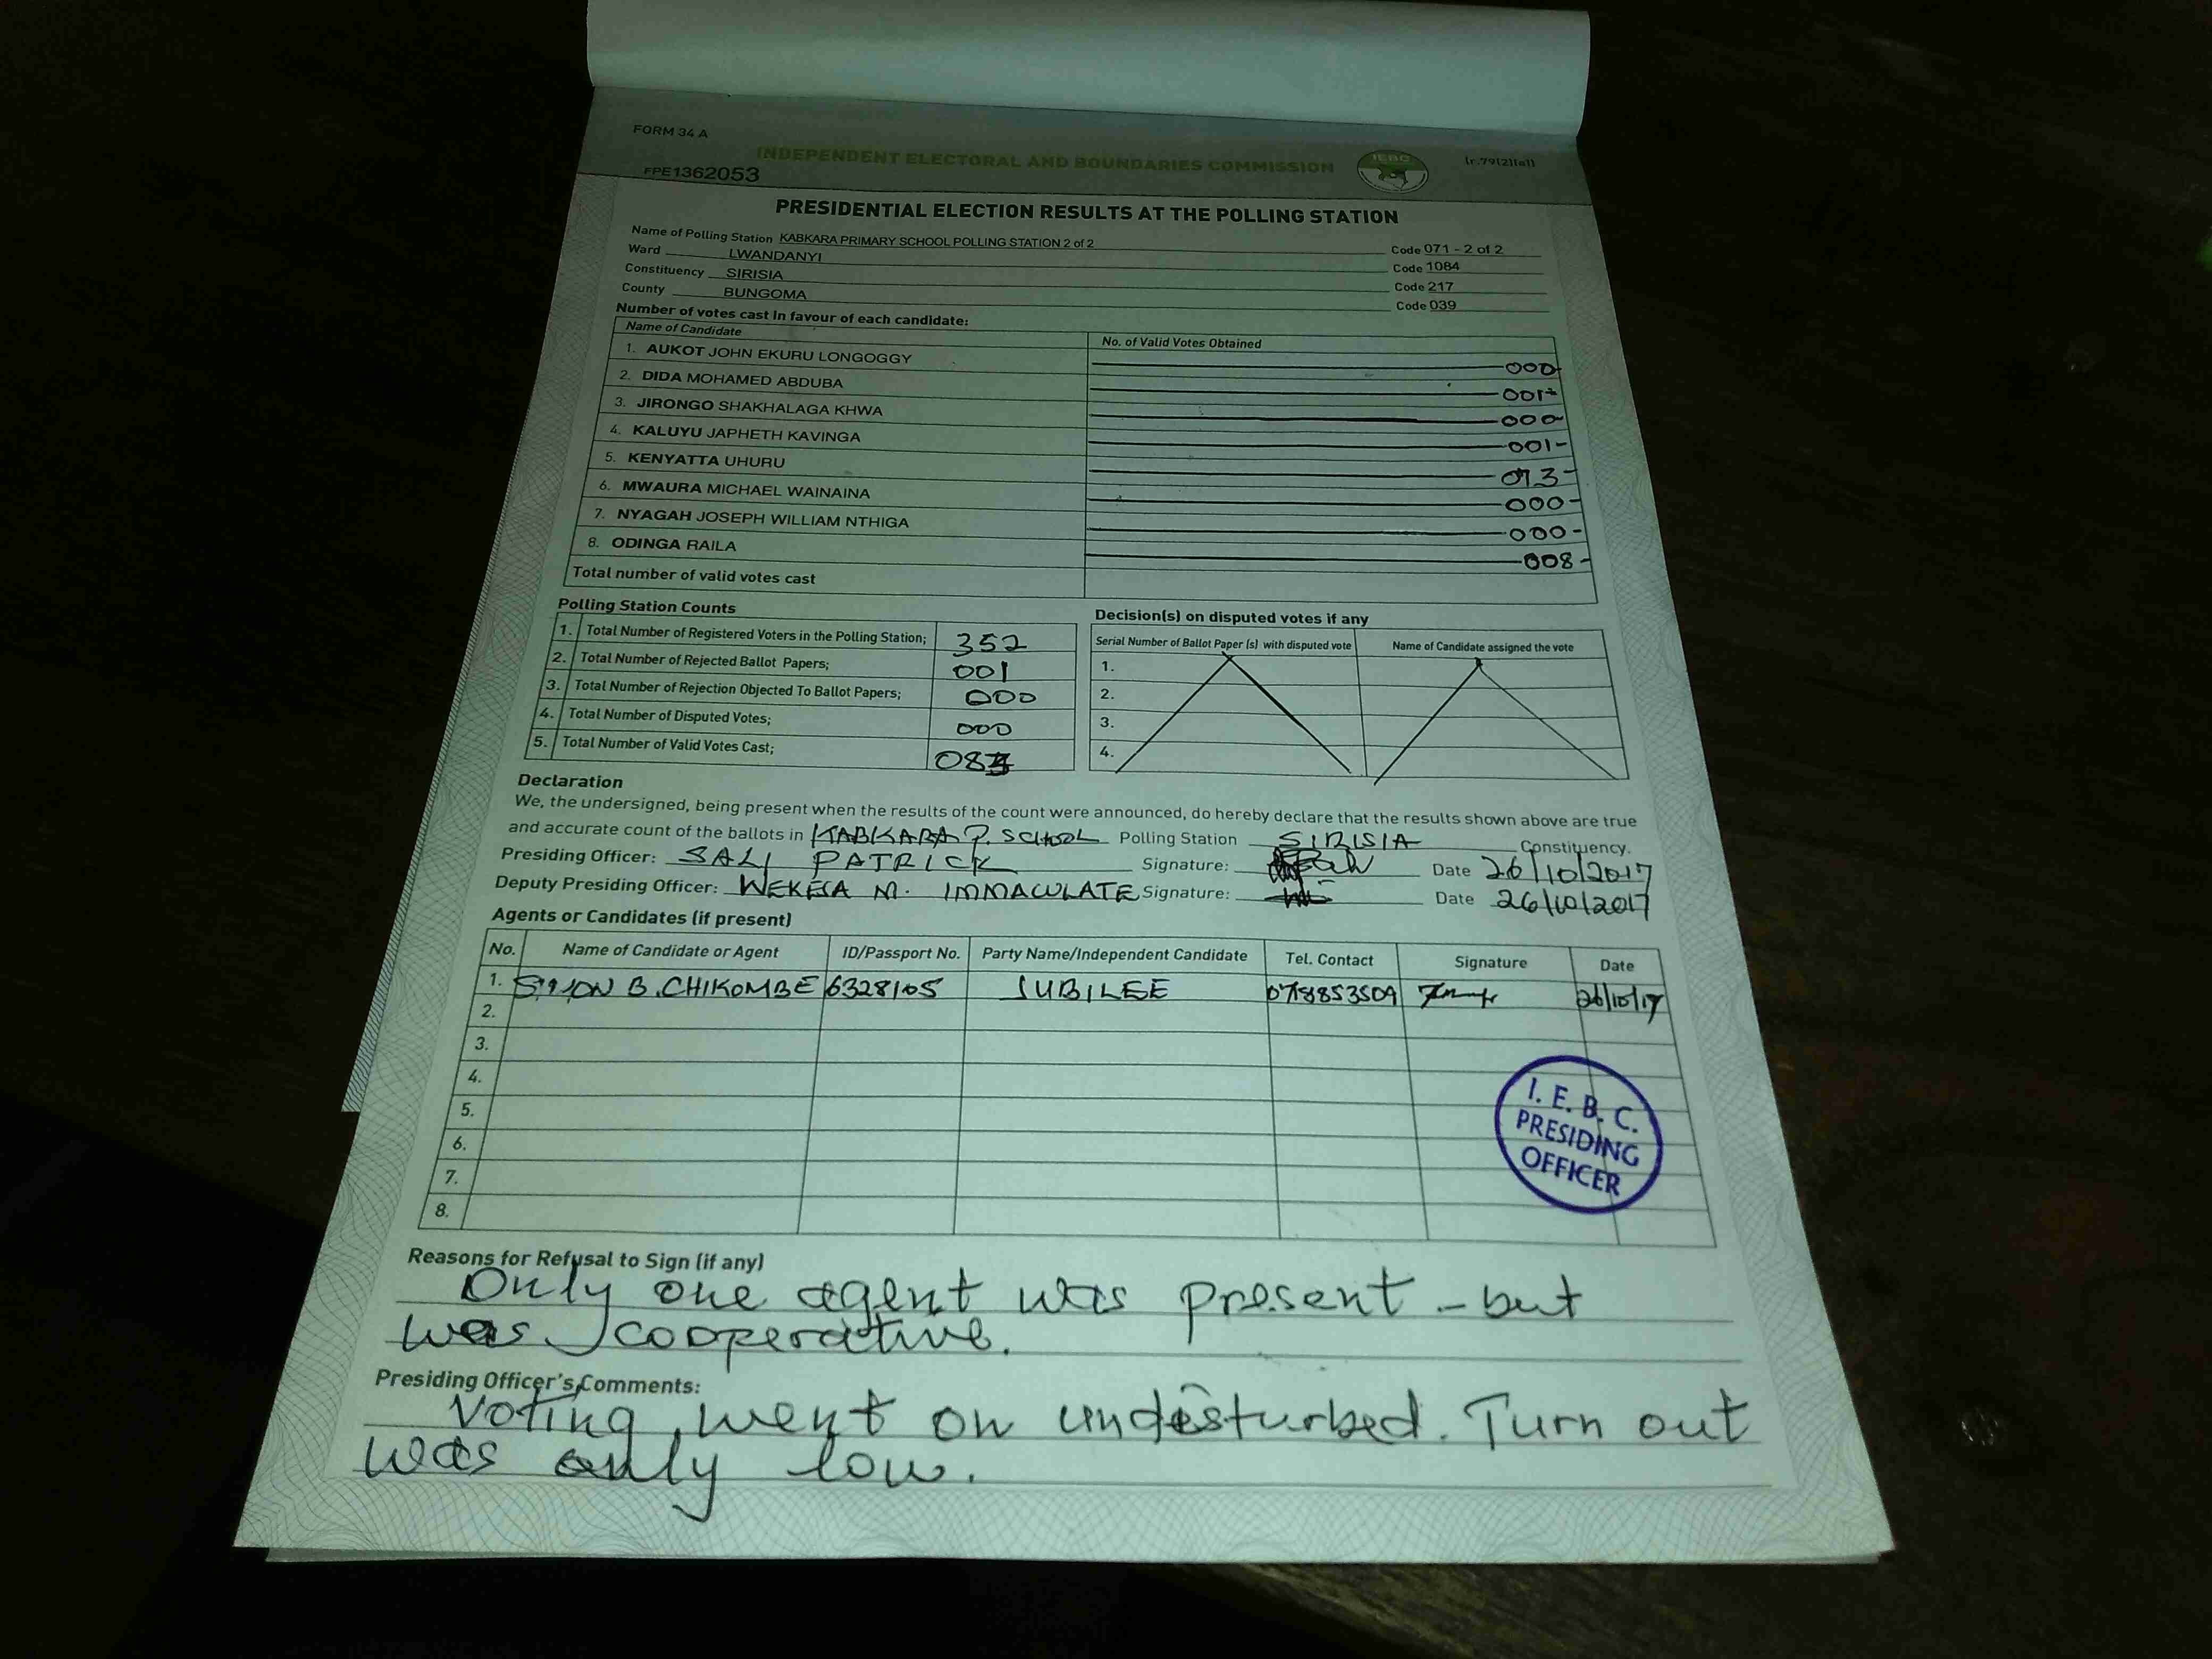 FORM 34 A
INDEPENDENT ELECTORAL AND BOUNDARIES COMMISSION IEBC (r.79(2)(a))
FPE1362053
PRESIDENTIAL ELECTION RESULTS AT THE POLLING STATION
Name of Polling Station KABKARA PRIMARY SCHOOL POLLING STATION 2 of 2 Code 071 - 2 of 2
Ward LWANDANYI Code 1084
Constituency SIRISIA Code 217
County BUNGOMA Code 039
Number of votes cast in favour of each candidate:
Name of Candidate No. of Valid Votes Obtained
1. AUKOT JOHN EKURU LONGOGGY 000
2. DIDA MOHAMED ABDUBA 001
3. JIRONGO SHAKHALAGA KHWA 000
4. KALUYU JAPHETH KAVINGA 001
5. KENYATTA UHURU 073
6. MWAURA MICHAEL WAINAINA 000
7. NYAGAH JOSEPH WILLIAM NTHIGA 000
8. ODINGA RAILA 008
Total number of valid votes cast
Polling Station Counts Decision(s) on disputed votes if any
Serial Number of Ballot Paper (s) with disputed vote Name of Candidate assigned the vote
1. Total Number of Registered Voters in the Polling Station; 352 1.
2. Total Number of Rejected Ballot Papers; 001 2.
3. Total Number of Rejection Objected To Ballot Papers; 000 3.
4. Total Number of Disputed Votes; 000 4.
5. Total Number of Valid Votes Cast;
Declaration
We, the undersigned, being present when the results of the count were announced, do hereby declare that the results shown above are true
and accurate count of the ballots in KABKARA P. SCHOOL Polling Station SIRISIA Constituency.
Presiding Officer: SALI PATRICK Signature: Date 26/10/2017
Deputy Presiding Officer: WEKESA M. IMMACULATE Signature: Date 26/10/2017
Agents or Candidates (if present)
No. Name of Candidate or Agent ID/Passport No. Party Name/Independent Candidate Tel. Contact Signature Date
1. SIMON B. CHIKOMBE 6328105 JUBILEE 26/10/17
2.
3.
4.
5.
6.
7.
8.
I. E. B. C.
PRESIDING
OFFICER
Reasons for Refusal to Sign (if any)
Only one agent was present - but
was cooperative.
Presiding Officer's Comments:
Voting went on undisturbed. Turn out
was only low.